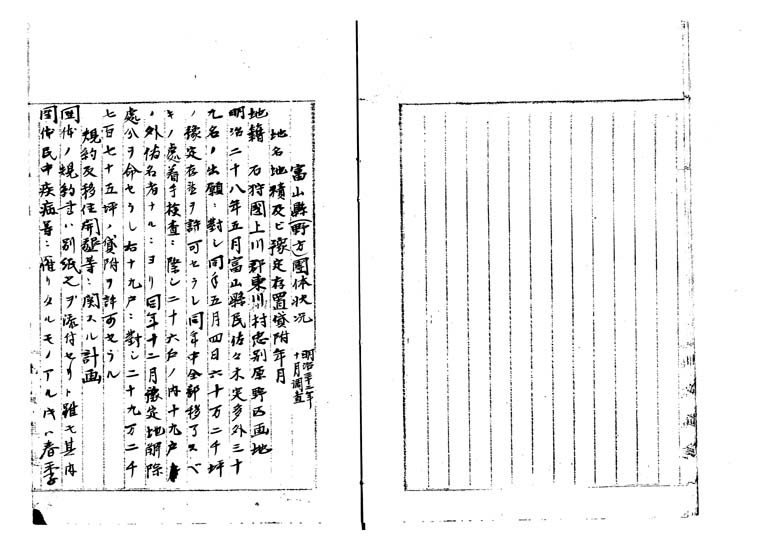 富山縣(野方)團体状况
明治三十二年十月調査
地名地積及ヒ豫定存置貸附年月
地籍 石狩國上川郡東川村忠別原野区画地
明治二十八年五月富山縣民佐々木定多外三十
九名ノ出願ニ對シ同年五月四日六十万二千坪
ノ豫定存置ヲ許可セラレ同年中全部移了スベ
キノ處着手検査ニ際シ二十六戸ノ内十九戸
ノ外佑名者ナルニヨリ同年十二月豫定地解除
處分ヲ命セラレ右十九戸ニ對シ二十九万二千
七百七十五坪ノ貸附ヲ許可セラル
規約及移住開墾等ニ関スル計画
団体ノ規約書ハ別紙之ヲ添付セリト雖モ其内
団体民中疾病等ニ罹リタルモノアル時ハ春季